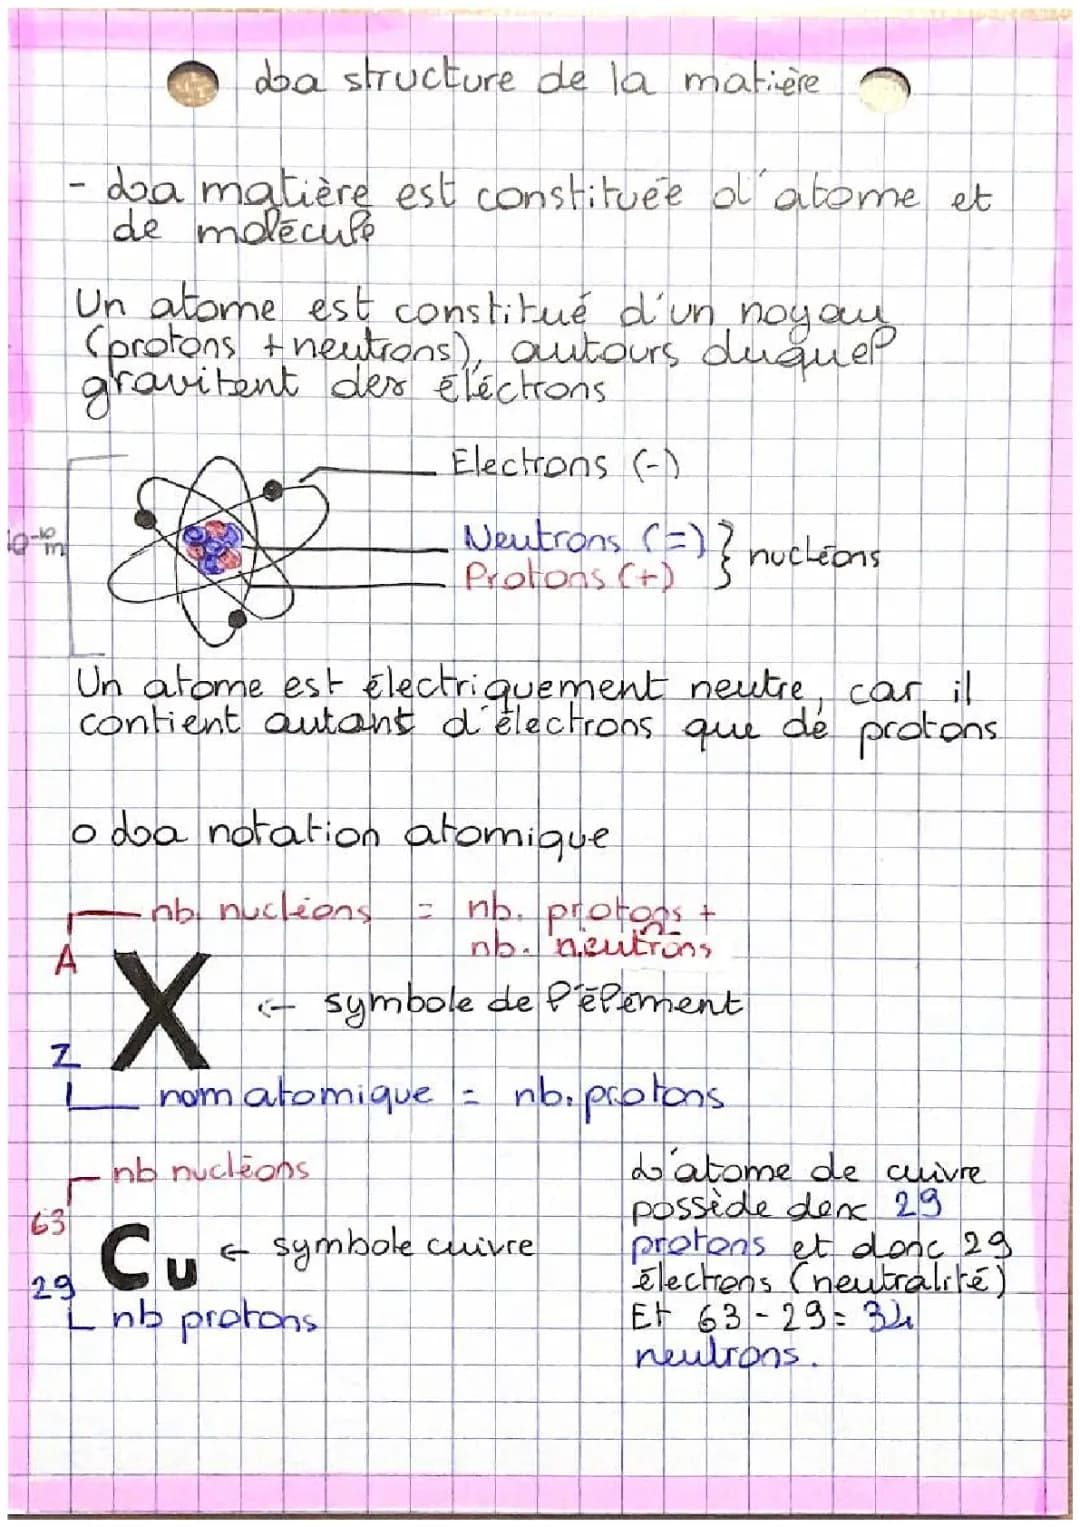 La structure de la matière
- La matière est constituée d'atome et
de molécule
Un atome est constitué d'un noyau
(protons + neutrons), autours duquel
gravitent des éléctrons
Electrons (-)
10⁻¹⁰ m
Neutrons (=) } nucléons
Protons (+)
Un atome est électriquement neutre, car il
contient autant d'électrons que de protons
o La notation atomique
nb. nucléons = nb. protons +
nb. neutrons
A
X ← symbole de l'élément
Z
nom atomique = nb. protons
nb nucléons
63
Cu ← symbole cuivre
29
nb protons
L'atome de cuivre
possède donc 29
protons et donc 29
électrons (neutralité)
Et 63 - 29 = 34
neutrons.